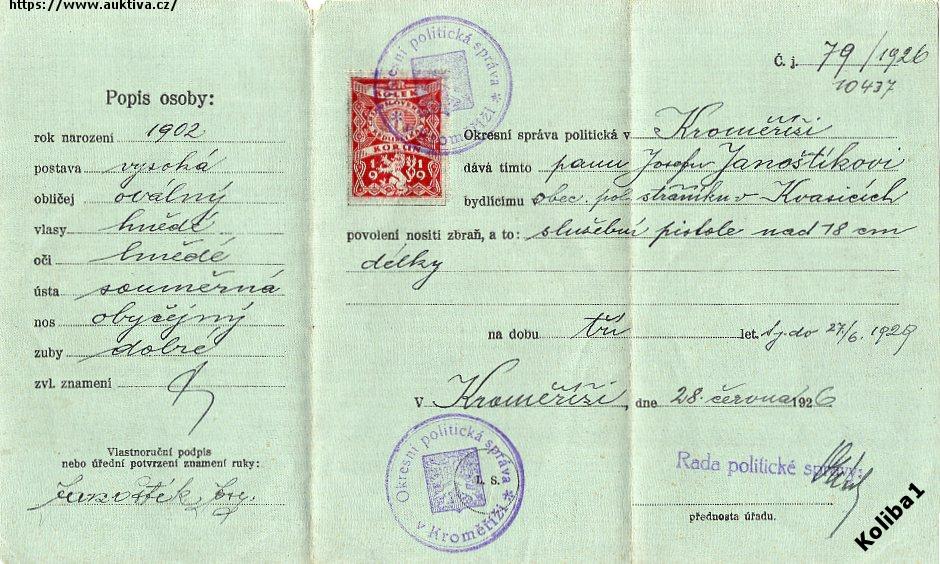 https://www.auktiva.cz/
Popis osoby:
rok narození 1902
postava vysoká
obličej oválný
vlasy hnědé
oči hnědé
ústa souměrná
nos obyčejný
zuby dobré
zvl. znamení
Vlastnoruční podpis
nebo úřední potvrzení znamení ruky:
Janoštík
Okresní politická správa
v Kroměříži
KOLEK
KORUN
1919
Č. j. 79/1926
10437
Okresní správa politická v Kroměříži
dává tímto panu Josefu Janoštíkovi
bydlícímu obec. pol. strážníku v Kvasicích
povolení nositi zbraň, a to: služební pistole nad 18 cm
délky
na dobu tři let tj. do 27/6. 1929
V Kroměříži, dne 28. června 1926
Okresní politická správa
v Kroměříži
L. S.
Rada politické správy:
přednosta úřadu.
Koliba1